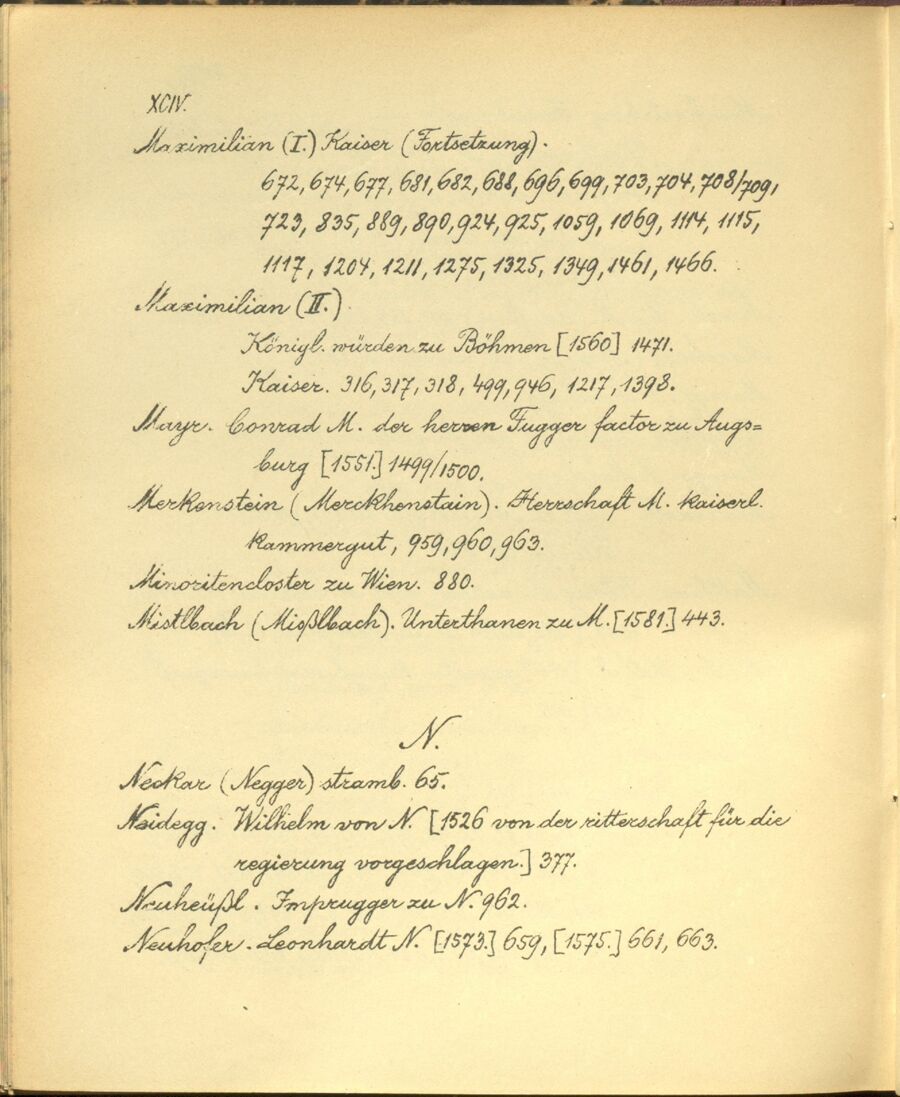 XCIV.
Maximilian (I.) Kaiser (Fortsetzung).
672, 674, 677, 681, 682, 688, 696, 699, 703, 704, 708/709,
723, 835, 889, 890, 924, 925, 1059, 1069, 1114, 1115,
1117, 1204, 1211, 1275, 1325, 1349, 1461, 1466.
Maximilian (II.)
Königl. würden zu Böhmen [1560] 1471.
Kaiser. 316, 317, 318, 499, 946, 1217, 1398.
Mayr. Conrad M. der herren Fugger factor zu Augs=
burg [1551.] 1499/1500.
Merkenstein (Merckhenstain). Herrschaft M. kaiserl.
kammergut, 959, 960, 963.
Minoritencloster zu Wien. 880.
Mistlbach (Mißlbach). Unterthanen zu M. [1581.] 443.
N.
Neckar (Negger) stramb. 65.
Neidegg. Wilhelm von N. [1526 von der ritterschaft für die
regierung vorgeschlagen.] 377.
Neuheüßl. Imprugger zu N. 962.
Neuhofer. Leonhardt N. [1573.] 659, [1575.] 661, 663.